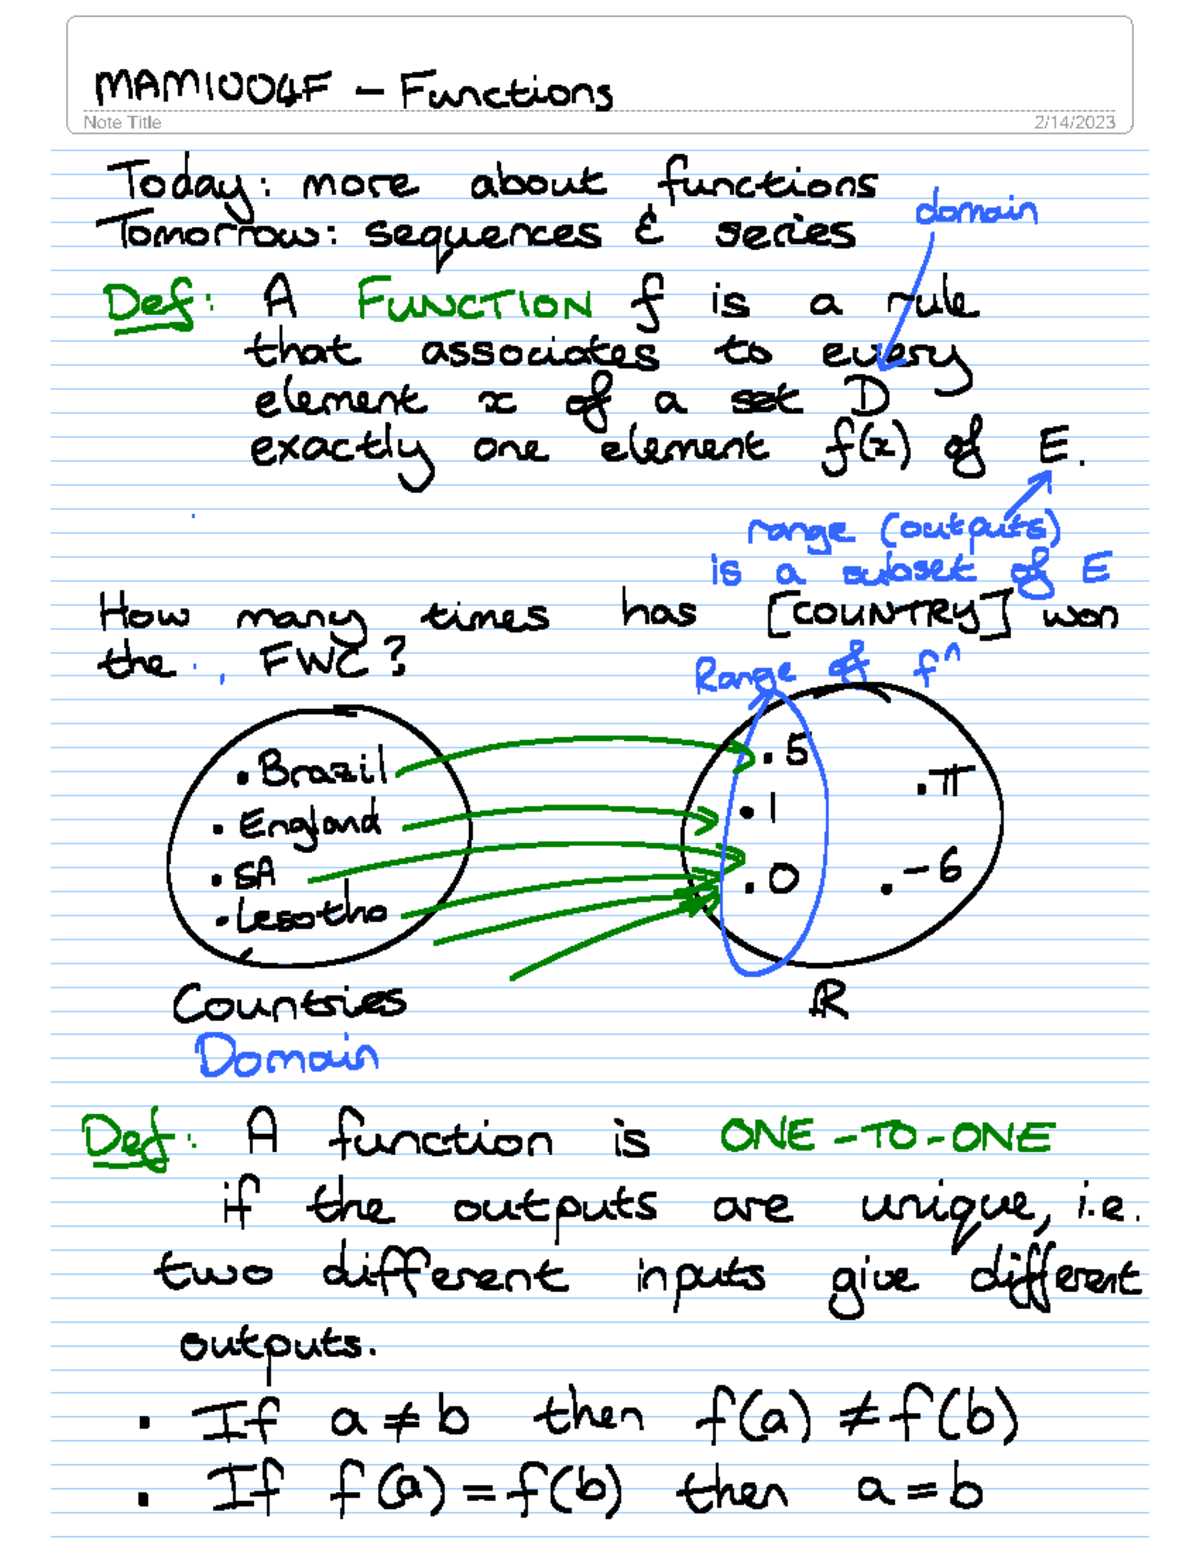 MAM1004F – Functions
Note Title
2/14/2023
Today: more about functions
Tomorrow: sequences & series
domain
Def: A FUNCTION f is a rule
that associates to every
element x of a set D
exactly one element f(x) of E.
range (outputs)
is a subset of E
How many times has [COUNTRY] won
the FWC?
Range of fⁿ
• Brazil
• England
• SA
• Lesotho
• 5
• 1
• 0
• π
• -6
Countries
ℝ
Domain
Def: A function is ONE-TO-ONE
if the outputs are unique, i.e.
two different inputs give different
outputs.
• If a ≠ b then f(a) ≠ f(b)
• If f(a) = f(b) then a = b